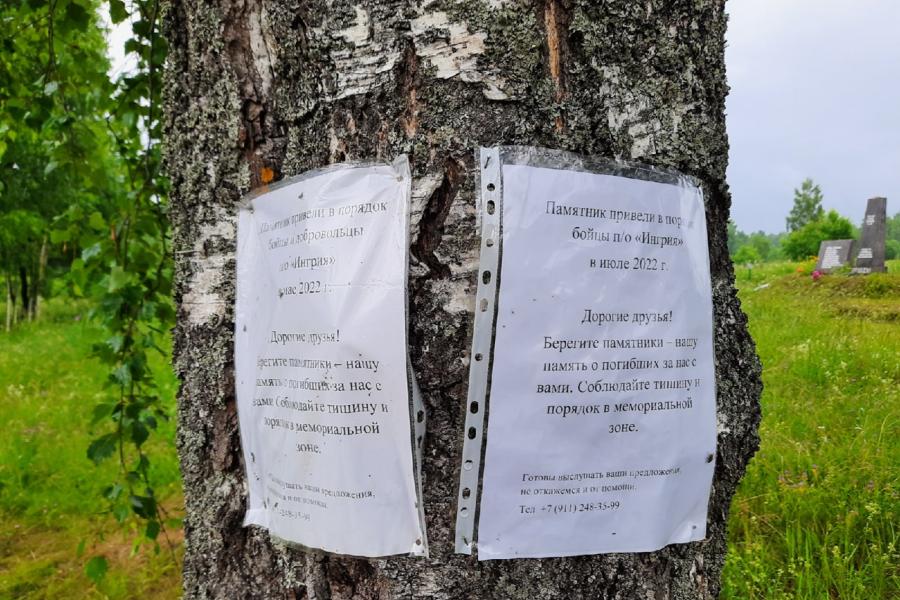 Памятник привели в порядок
бойцы и добровольцы
п/о «Ингрия»
2022 г.
Дорогие друзья!
Берегите памятники – нашу
память о погибших за нас с
вами. Соблюдайте тишину и
порядок в мемориальной
зоне.
ваши предложения,
и от помощи.
-248-35-99
Памятник привели в
бойцы п/о «Ингрия»
в июле 2022 г.
Дорогие друзья!
Берегите памятники – нашу
память о погибших за нас с
вами. Соблюдайте тишину и
порядок в мемориальной
зоне.
Готовы выслушать ваши предложения,
не откажемся и от помощи.
Тел +7 (911) 248-35-99